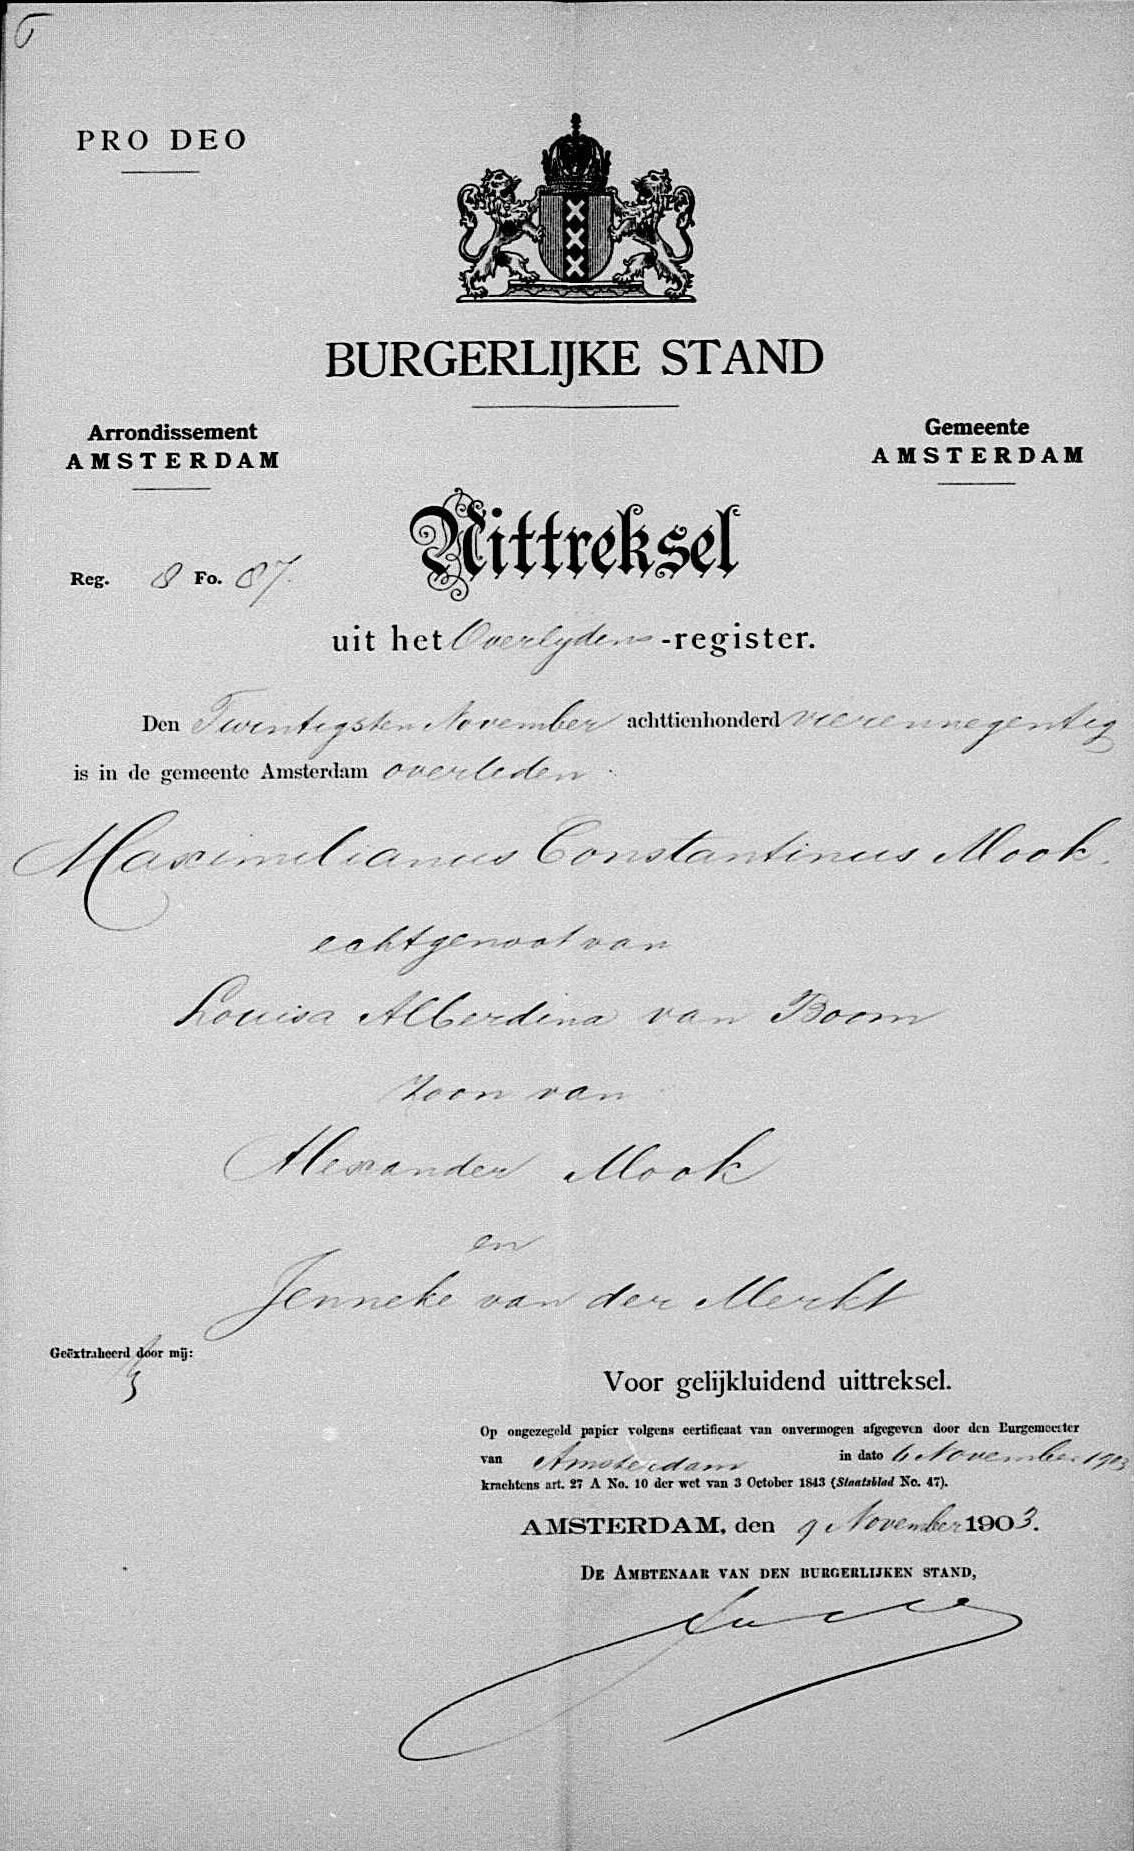 PRO DEO
BURGERLIJKE STAND
Arrondissement
AMSTERDAM
Gemeente
AMSTERDAM
Uittreksel
Reg. 8 Fo. 87.
uit het Overlijdens-register.
Den Twintigsten November achttienhonderd vierennegentig
is in de gemeente Amsterdam overleden
Maximilianus Constantinus Mook.
echtgenoot van
Louisa Alberdina van Boom
Zoon van
Alexander Mook
en
Jenneke van der Merkt
Geëxtraheerd door mij:
Voor gelijkluidend uittreksel.
Op ongezegeld papier volgens certificaat van onvermogen afgegeven door den Burgemeester
van Amsterdam in dato 6 November 1903
krachtens art. 27 A No. 10 der wet van 3 October 1843 (Staatsblad No. 47).
AMSTERDAM, den 9 November 1903.
DE AMBTENAAR VAN DEN BURGERLIJKEN STAND,